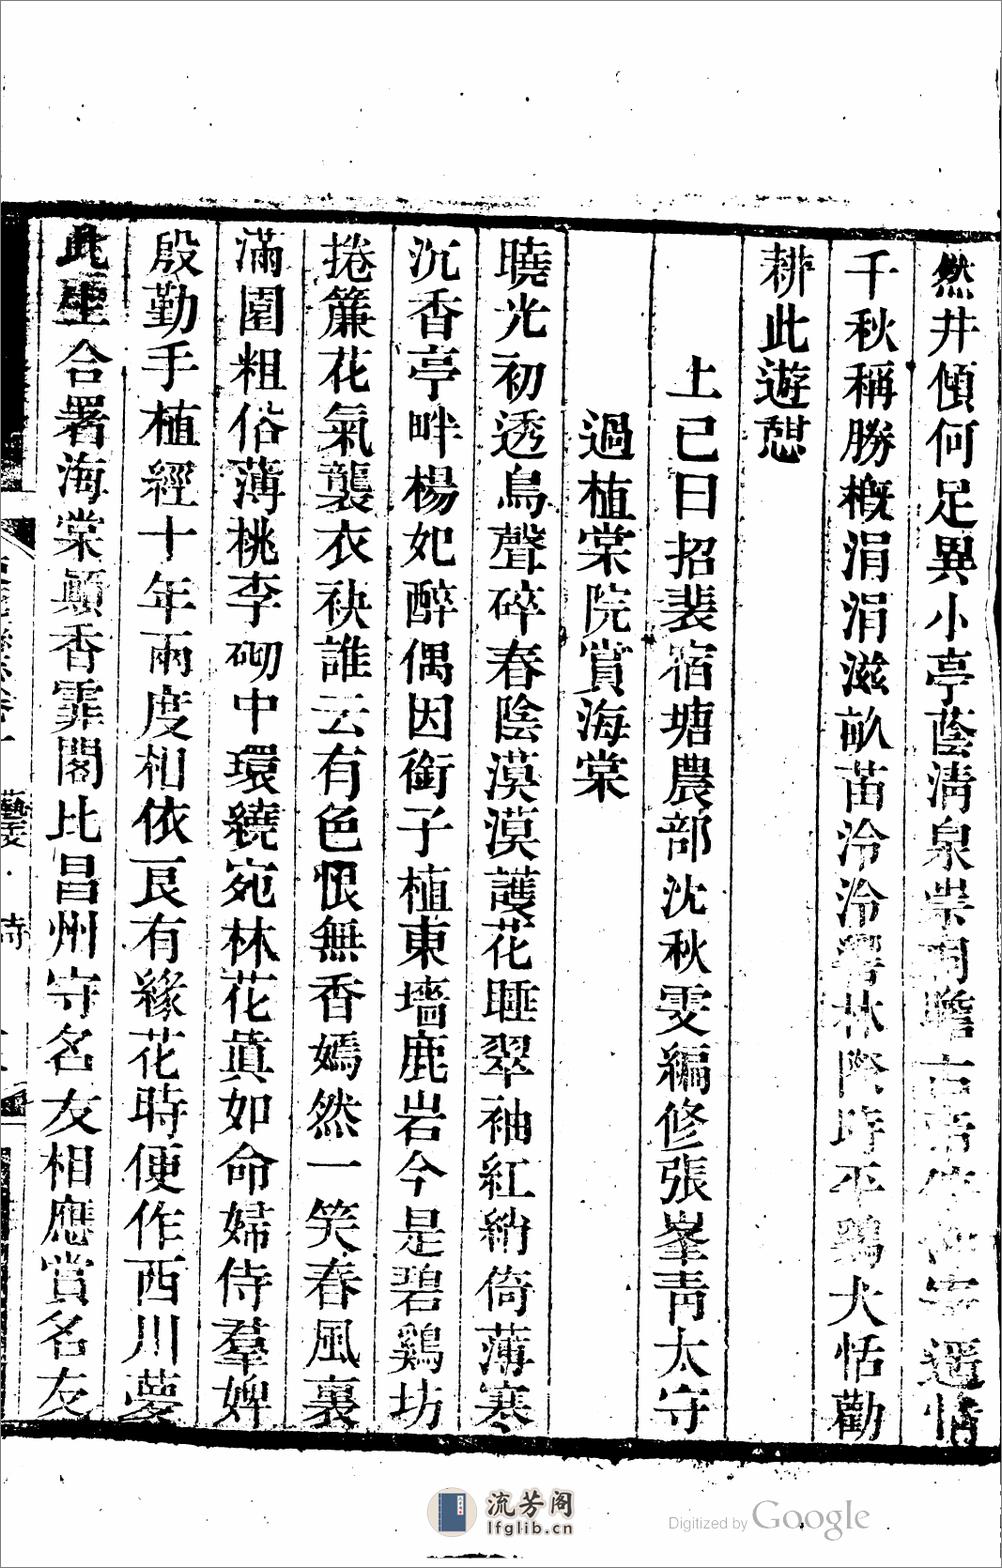 然井傾何足異小亭蔭淸泉崇洞瞻遥情
千秋稱勝槪涓涓滋畝苗泠泠響林隂時平鷄犬恬勸
耕此遊憇
上巳日招裴宿塘農部沈秋雯編修張峯靑太守
過植棠院賞海棠
曉光初透鳥聲碎春陰漠漠護花睡翠袖紅綃倚薄寒
沉香亭畔楊妃醉偶因銜子植東墻鹿岩今是碧鷄坊
捲簾花氣襲衣袂誰云有色恨無香嫣然一笑春風裏
滿園粗俗薄桃李砌中環繞宛林花眞如命婦侍羣婢
殷勤手植經十年兩度相依良有緣花時便作西川夢
此生合署海棠顚香霏閣比昌州守名友相應賞名友
藝文
詩
流芳阁
lfglib.cn
Digitized by Google